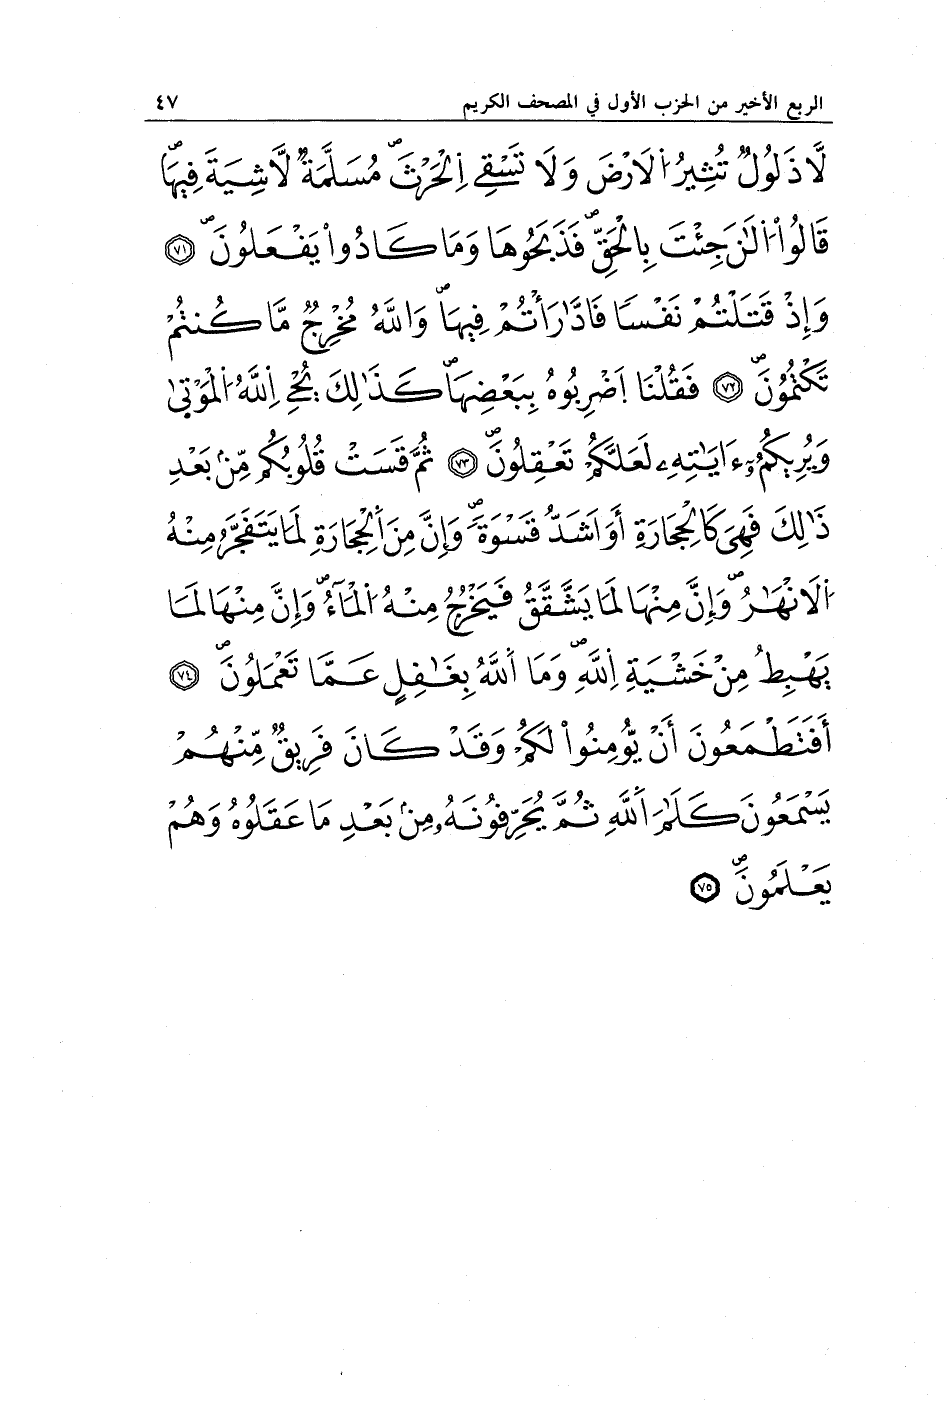 الربع الأخير من الحزب الأول في المصحف الكريم ٤٧
لَّا ذَلُولٌ تُثِيرُ اُلَارْضَ وَلَا تَسْقِے اِلْحَرْثَۖ مُسَلَّمَةٌ لَّا شِيَةَ فِيهَاۖ
قَالُواْ اُلَٰنَ جِئْتَ بِالْحَقِّۖ فَذَبَحُوهَا وَمَا كَادُواْ يَفْعَلُونَۖ ٧١
وَإِذْ قَتَلْتُمْ نَفْساً فَادَّٰرَأْتُمْ فِيهَاۖ وَاللَّهُ مُخْرِجٌ مَّا كُنتُمْ
تَكْتُمُونَۖ ٧٢ فَقُلْنَا اَضْرِبُوهُ بِبَعْضِهَاۖ كَذَٰلِكَ يُحْيِ اِللَّهُ اُلْمَوْتَىٰ
وَيُرِيكُمُۥٓ ءَايَٰتِهِۦ لَعَلَّكُمْ تَعْقِلُونَۖ ٧٣ ثُمَّ قَسَتْ قُلُوبُكُم مِّنۢ بَعْدِ
ذَٰلِكَ فَهِيَ كَالْحِجَارَةِ أَوَ اَشَدُّ قَسْوَةًۖ وَإِنَّ مِنَ اَلْحِجَارَةِ لَمَا يَتَفَجَّرُ مِنْهُ
اُلَانْهَٰرُۖ وَإِنَّ مِنْهَا لَمَا يَشَّقَّقُ فَيَخْرُجُ مِنْهُ اُلْمَآءُۖ وَإِنَّ مِنْهَا لَمَا
يَهْبِطُ مِنْ خَشْيَةِ اِللَّهِۖ وَمَا اَللَّهُ بِغَٰفِلٍ عَمَّا تَعْمَلُونَۖ ٧٤
أَفَتَطْمَعُونَ أَنْ يُّومِنُواْ لَكُمْ وَقَدْ كَانَ فَرِيقٌ مِّنْهُمْ
يَسْمَعُونَ كَلَٰمَ اَللَّهِ ثُمَّ يُحَرِّفُونَهُۥ مِنۢ بَعْدِ مَا عَقَلُوهُ وَهُمْ
يَعْلَمُونَۖ ٧٥